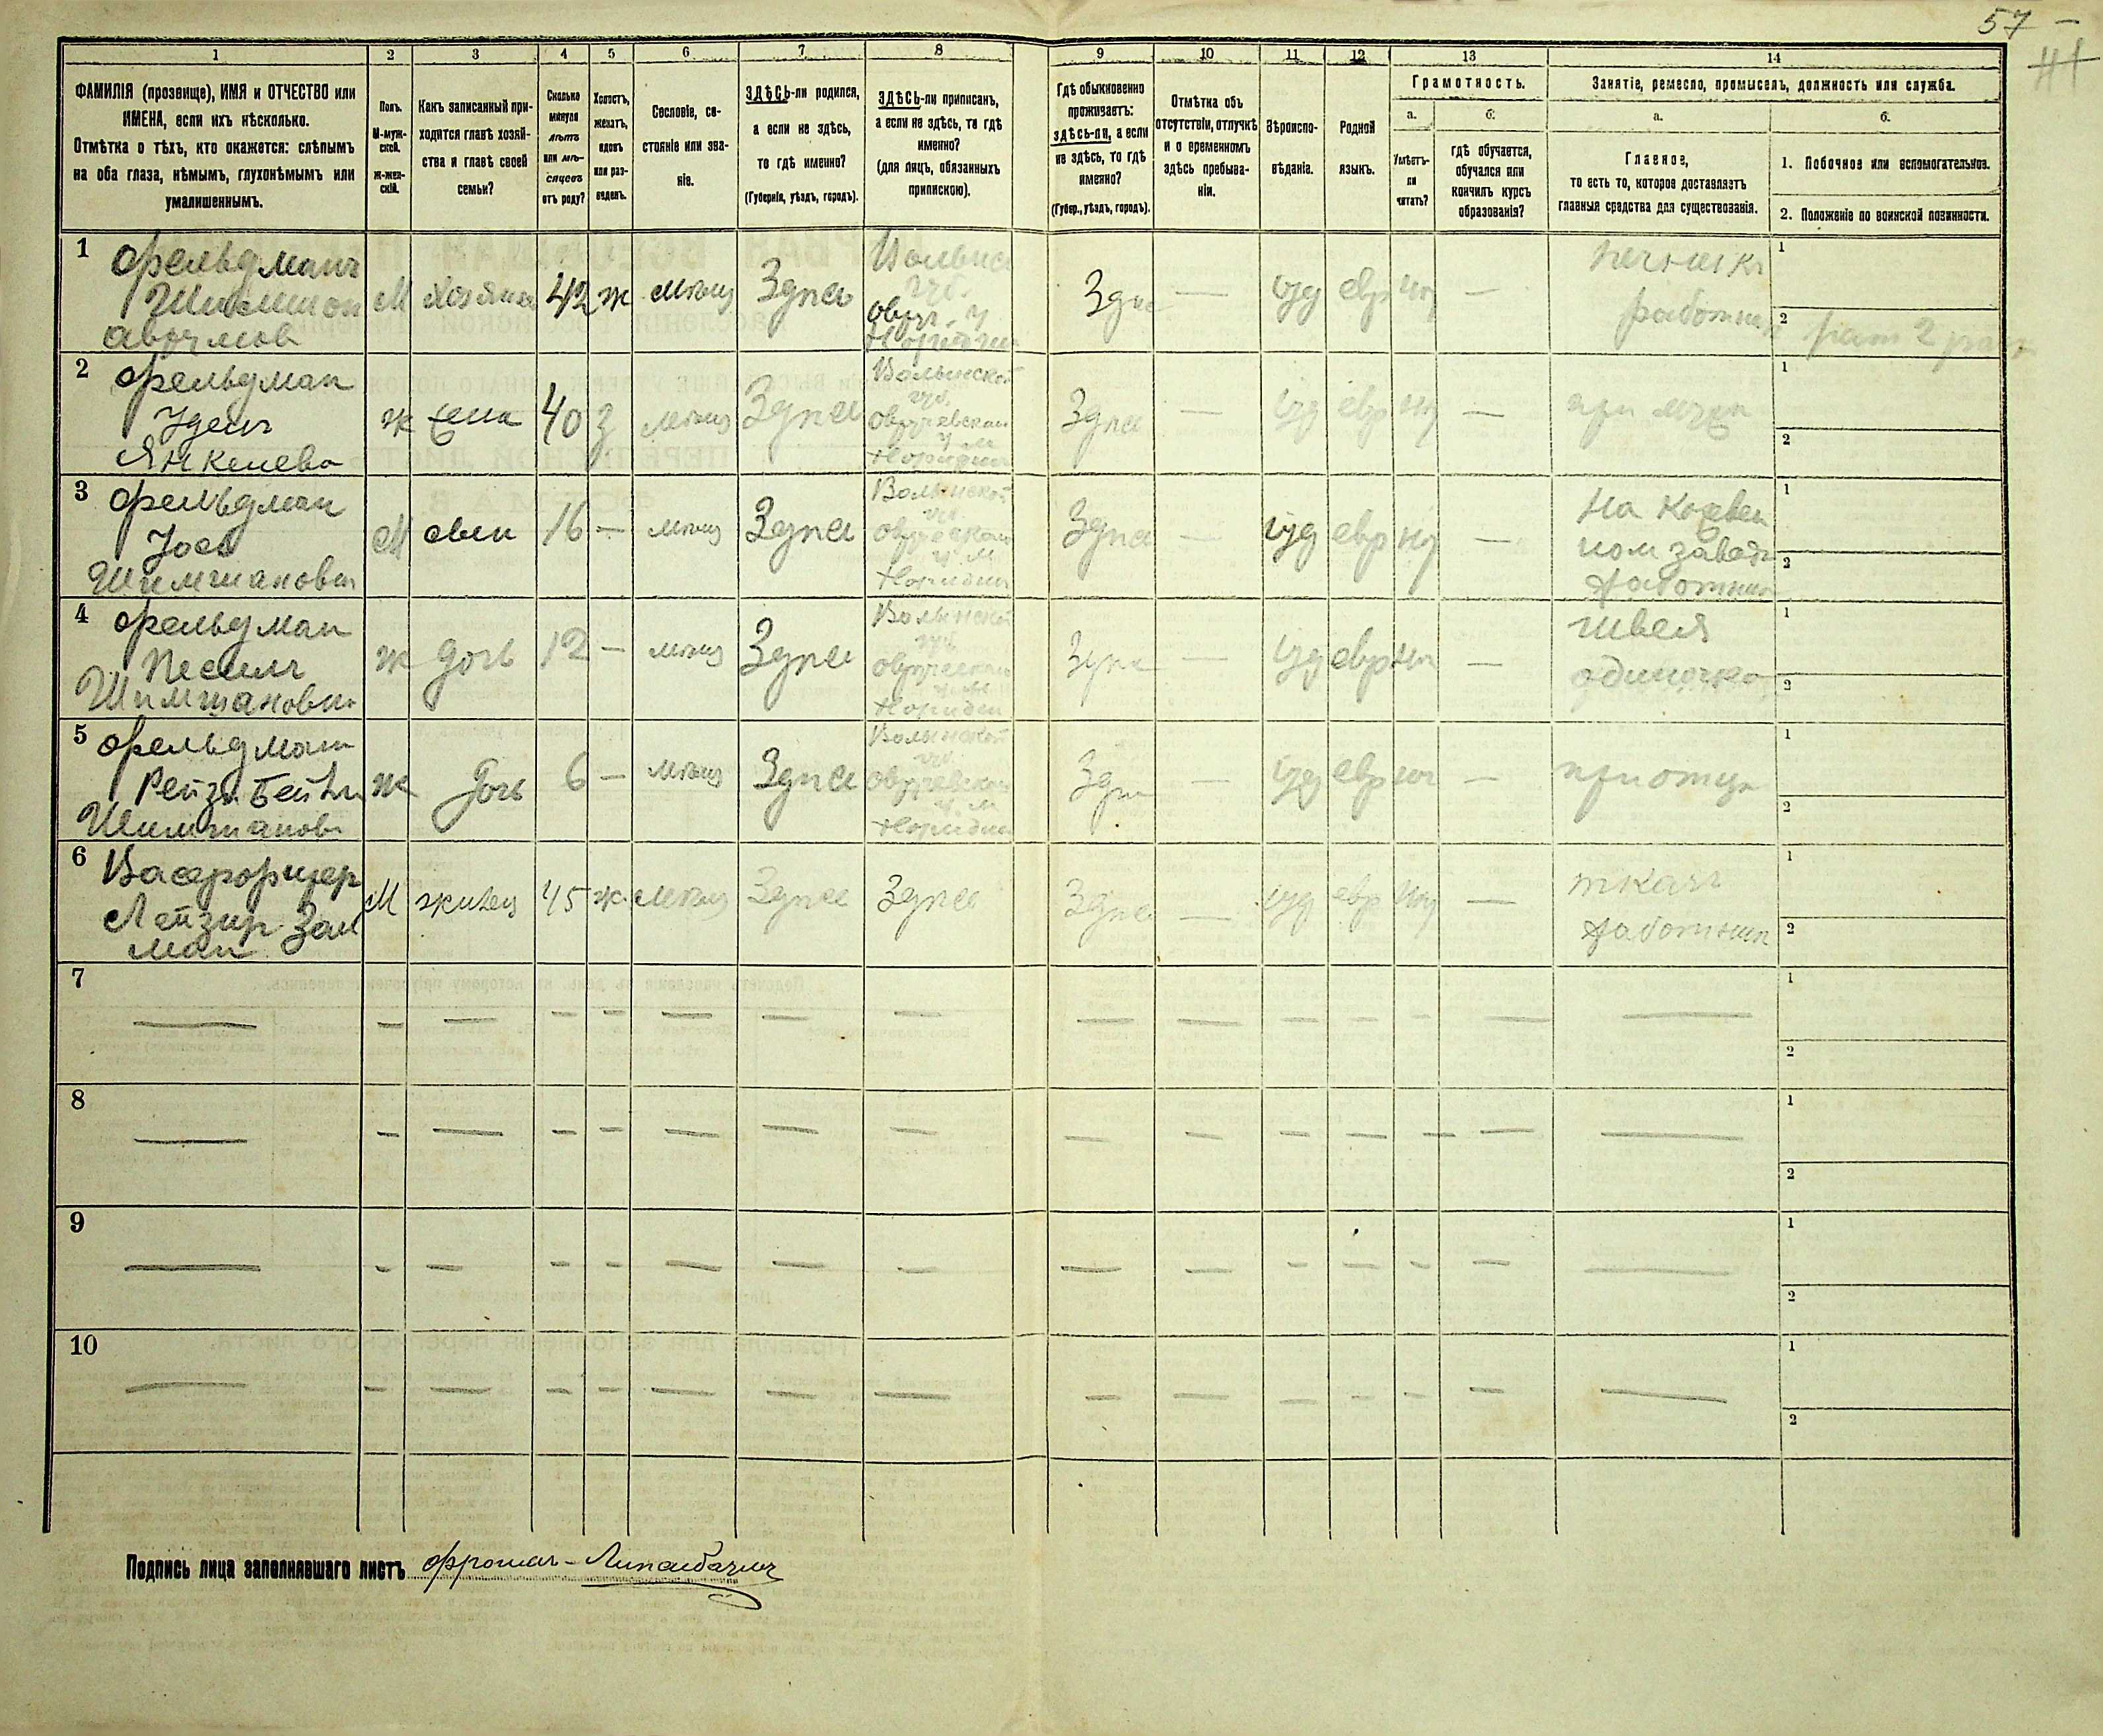 57 –
41
1
2
3
4
5
6
7
8
9
10
11
12
13
14
ФАМИЛІЯ (прозвище), ИМЯ и ОТЧЕСТВО или
ИМЕНА, если ихъ нѣсколько.
Отмѣтка о тѣхъ, кто окажется: слѣпымъ
на оба глаза, нѣмымъ, глухонѣмымъ или
умалишеннымъ.
Полъ.
М-муж-
ской.
Ж-жен-
скій.
Какъ записанный при-
ходится главѣ хозяй-
ства и главѣ своей
семьи?
Сколько
минуло
лѣтъ
или мѣ-
сяцевъ
отъ роду?
Холостъ,
женатъ,
вдовъ
или раз-
веденъ.
Сословіе, со-
стояніе или зва-
ніе.
ЗДѢСЬ-ли родился,
а если не здѣсь,
то гдѣ именно?
(Губернія, уѣздъ, городъ).
ЗДѢСЬ-ли приписанъ,
а если не здѣсь, то гдѣ
именно?
(для лицъ, обязанныхъ
припискою).
Гдѣ обыкновенно
проживаетъ:
здѣсь-ли, а если
не здѣсь, то гдѣ
именно?
(Губер., уѣздъ, городъ).
Отмѣтка объ
отсутствіи, отлучкѣ
и о временномъ
здѣсь пребыва-
ніи.
Вѣроиспо-
вѣданіе.
Родной
языкъ.
Грамотность.
а.
Умѣетъ-
ли
читать?
б.
гдѣ обучается,
обучался или
кончилъ курсъ
образованія?
Занятіе, ремесло, промыселъ, должность или служба.
а.
Главное,
то есть то, которое доставляетъ
главныя средства для существованія.
б.
1. Побочное или вспомогательное.
2. Положеніе по воинской повинности.
1 Фельдманъ
Шимшон
М хозяинъ 42 ж мѣщ Здѣсь
Волынс
губ.
овруч. у
Здѣс — іуд евр —
печникъ
работник
1
2
2 Фельдман
Янкелева
ж жена 40 з мѣщ Здѣсь
Волынской
губ.
Здѣсь — іуд евр — при мужѣ
1
2
3 Фельдман
Шимшанович
М сын 16 — мѣщ Здѣсь
Волынской
губ.
Здѣсь — іуд евр —
На кожевен
ном завод
работник
1
2
4 Фельдман
Песиль
Шимшановн
ж дочь 12 — мѣщ Здѣсь
Волынской
губ
Здѣс — іуд евр —
швея
одиночка
1
2
5 Фельдман
Рейзя Бейля
Шимшанов
ж дочь 6 — мѣщ Здѣсь
Волынской
губ.
Здѣс — іуд евр — при отцѣ
1
2
6
Лейзир Зал
ман
М жилец 45 ж мѣщ Здѣсь Здѣсь
Здѣс — іуд евр —
ткачъ
работник
1
2
7 — — — — — — — — — — — — — — —
1
2
8 — — — — — — — — — — — — — — —
1
2
9 — — — — — — — — — — — — — — —
1
2
10 — — — — — — — — — — — — — — —
1
2
Подпись лица заполнявшаго листъ